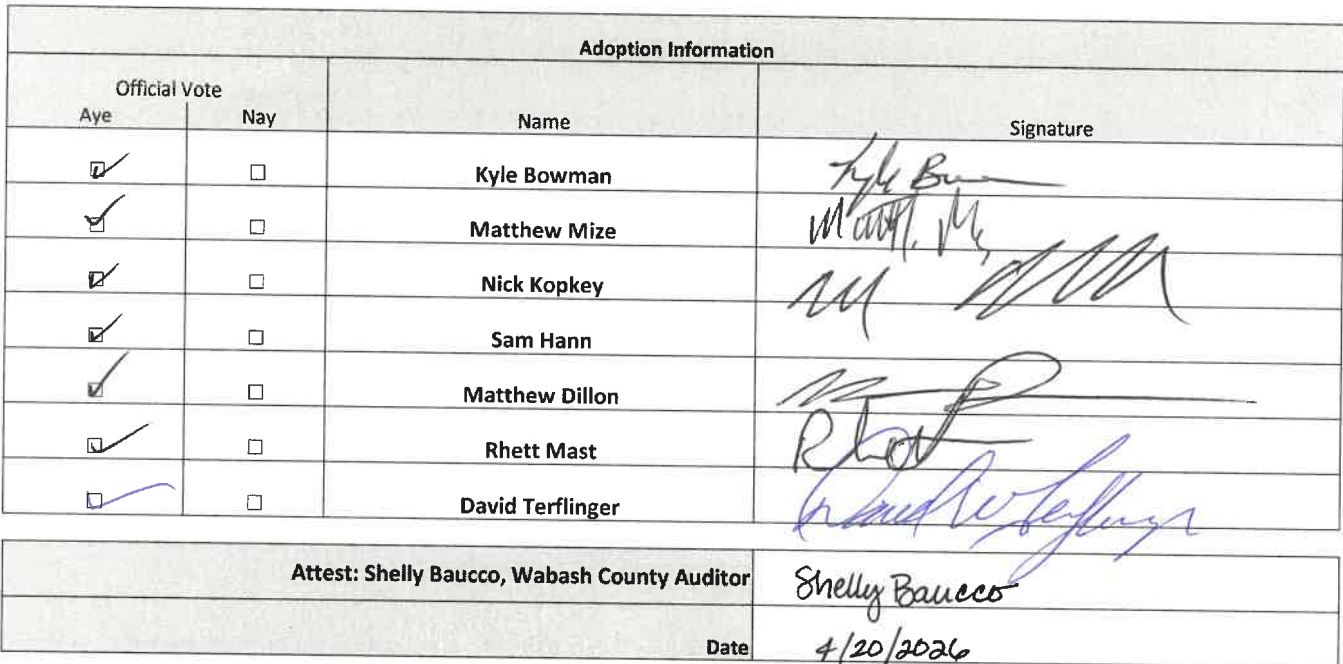 Adoption Information
Official Vote
Aye Nay Name Signature
Kyle Bowman Kyle
Matthew Mize
Nick Kopkey
Sam Hann
Matthew Dillon
Rhett Mast
David Terflinger David W Terflinger
Attest: Shelly Baucco, Wabash County Auditor Shelly Baucco
Date 4/20/2026